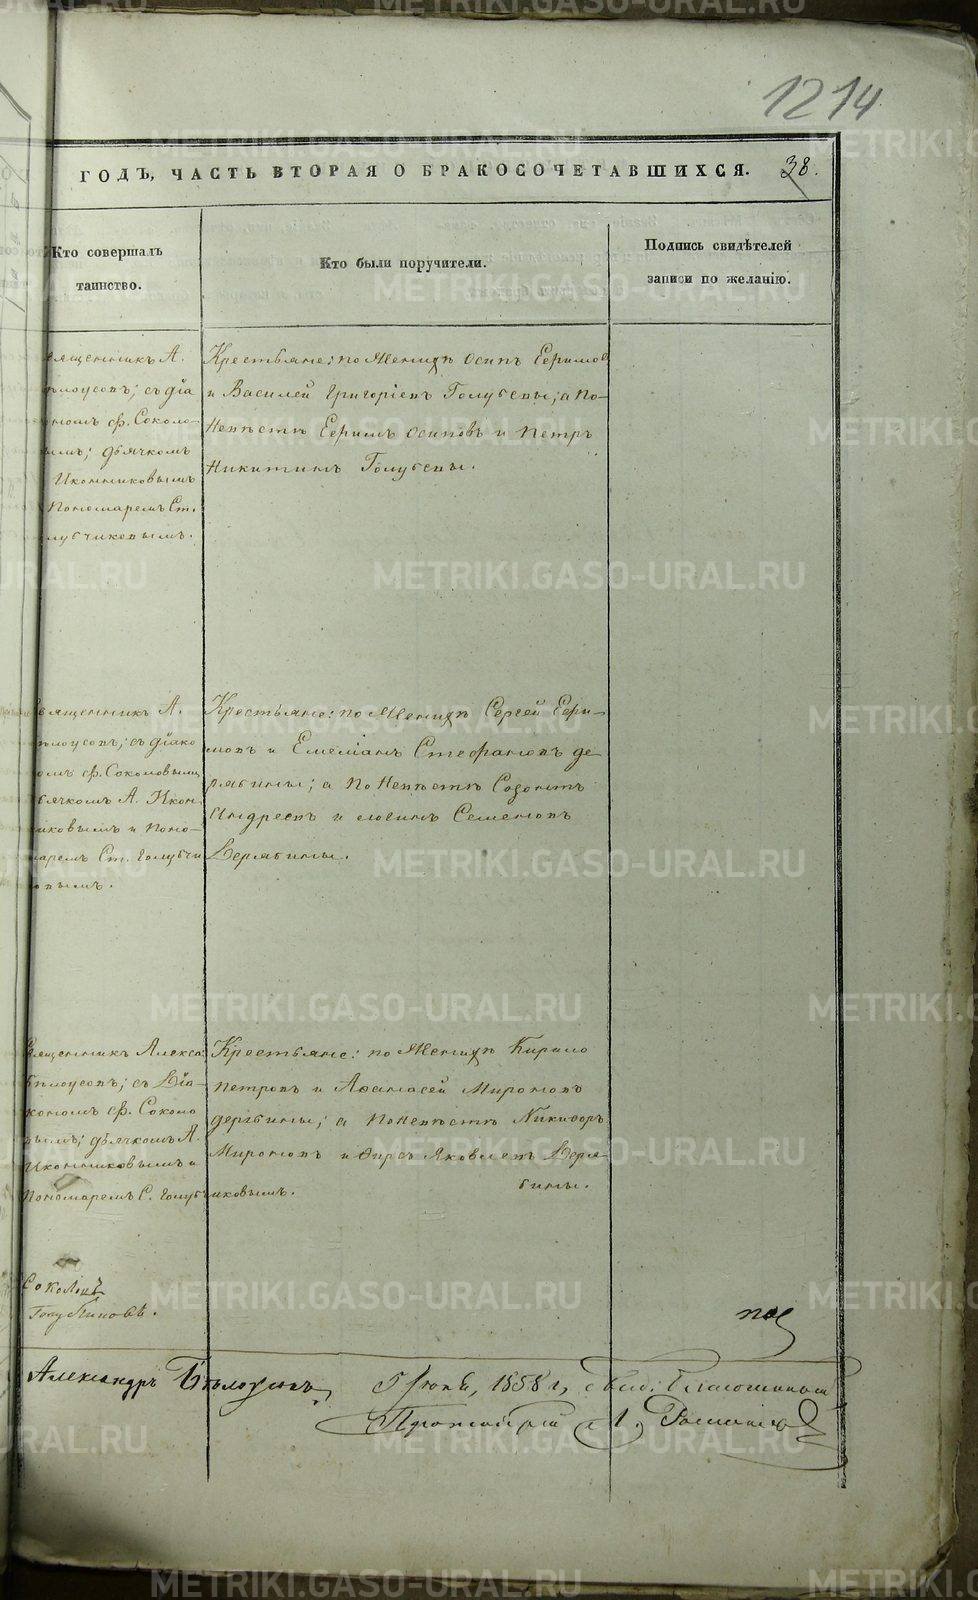 1214
ГОДЪ, ЧАСТЬ ВТОРАЯ О БРАКОСОЧЕТАВШИХСЯ.
38.
Кто совершалъ
таинство.
Кто были поручители.
Подпись свидѣтелей
записи по желанію.
ященникъ А.
ѣлоусовъ; съ діа
кономъ Ф. Соколо-
вымъ; дьячкомъ
Иконниковымъ
Пономаремъ Ст.
лубчиковымъ.
Крестьяне: по Женихѣ Осипъ Ефимов
и Василей Григоріевъ Голубевы; а по
Невѣстѣ Ефимъ Осиповъ и Петръ
Никитинъ Голубевы.
вященникъ А.
ѣлоусовъ; съ діако
номъ Ф. Соколовымъ
ячкомъ А. Икон
никовымъ и Поно-
маремъ Ст. Голубчи
ковымъ.
Крестьяне: по Женихѣ Сергей Ефи-
мовъ и Емеліанъ Стефановъ Де-
рябины; а по Невѣстѣ Созонтъ
Андреевъ и Логинъ Семеновъ
Дерябины.
вященникъ Алекса
Бѣлоусовъ; съ Діа-
кономъ Ф. Соколо
вымъ; дьячкомъ А.
Иконниковымъ и
Пономаремъ С. Голубчиковымъ.
Крестьяне: по Женихѣ Кирило
Петровъ и Афанасей Мироновъ
Дерябины; а по Невѣстѣ Никифоръ
Мироновъ и Фирсъ Яковлевъ Деря-
бины.
Соколовъ
Голубчиковъ.
Александръ Бѣлоусовъ
5 Іюня, 1858 г,
Протоіерей
METRIKI.GASO-URAL.RU